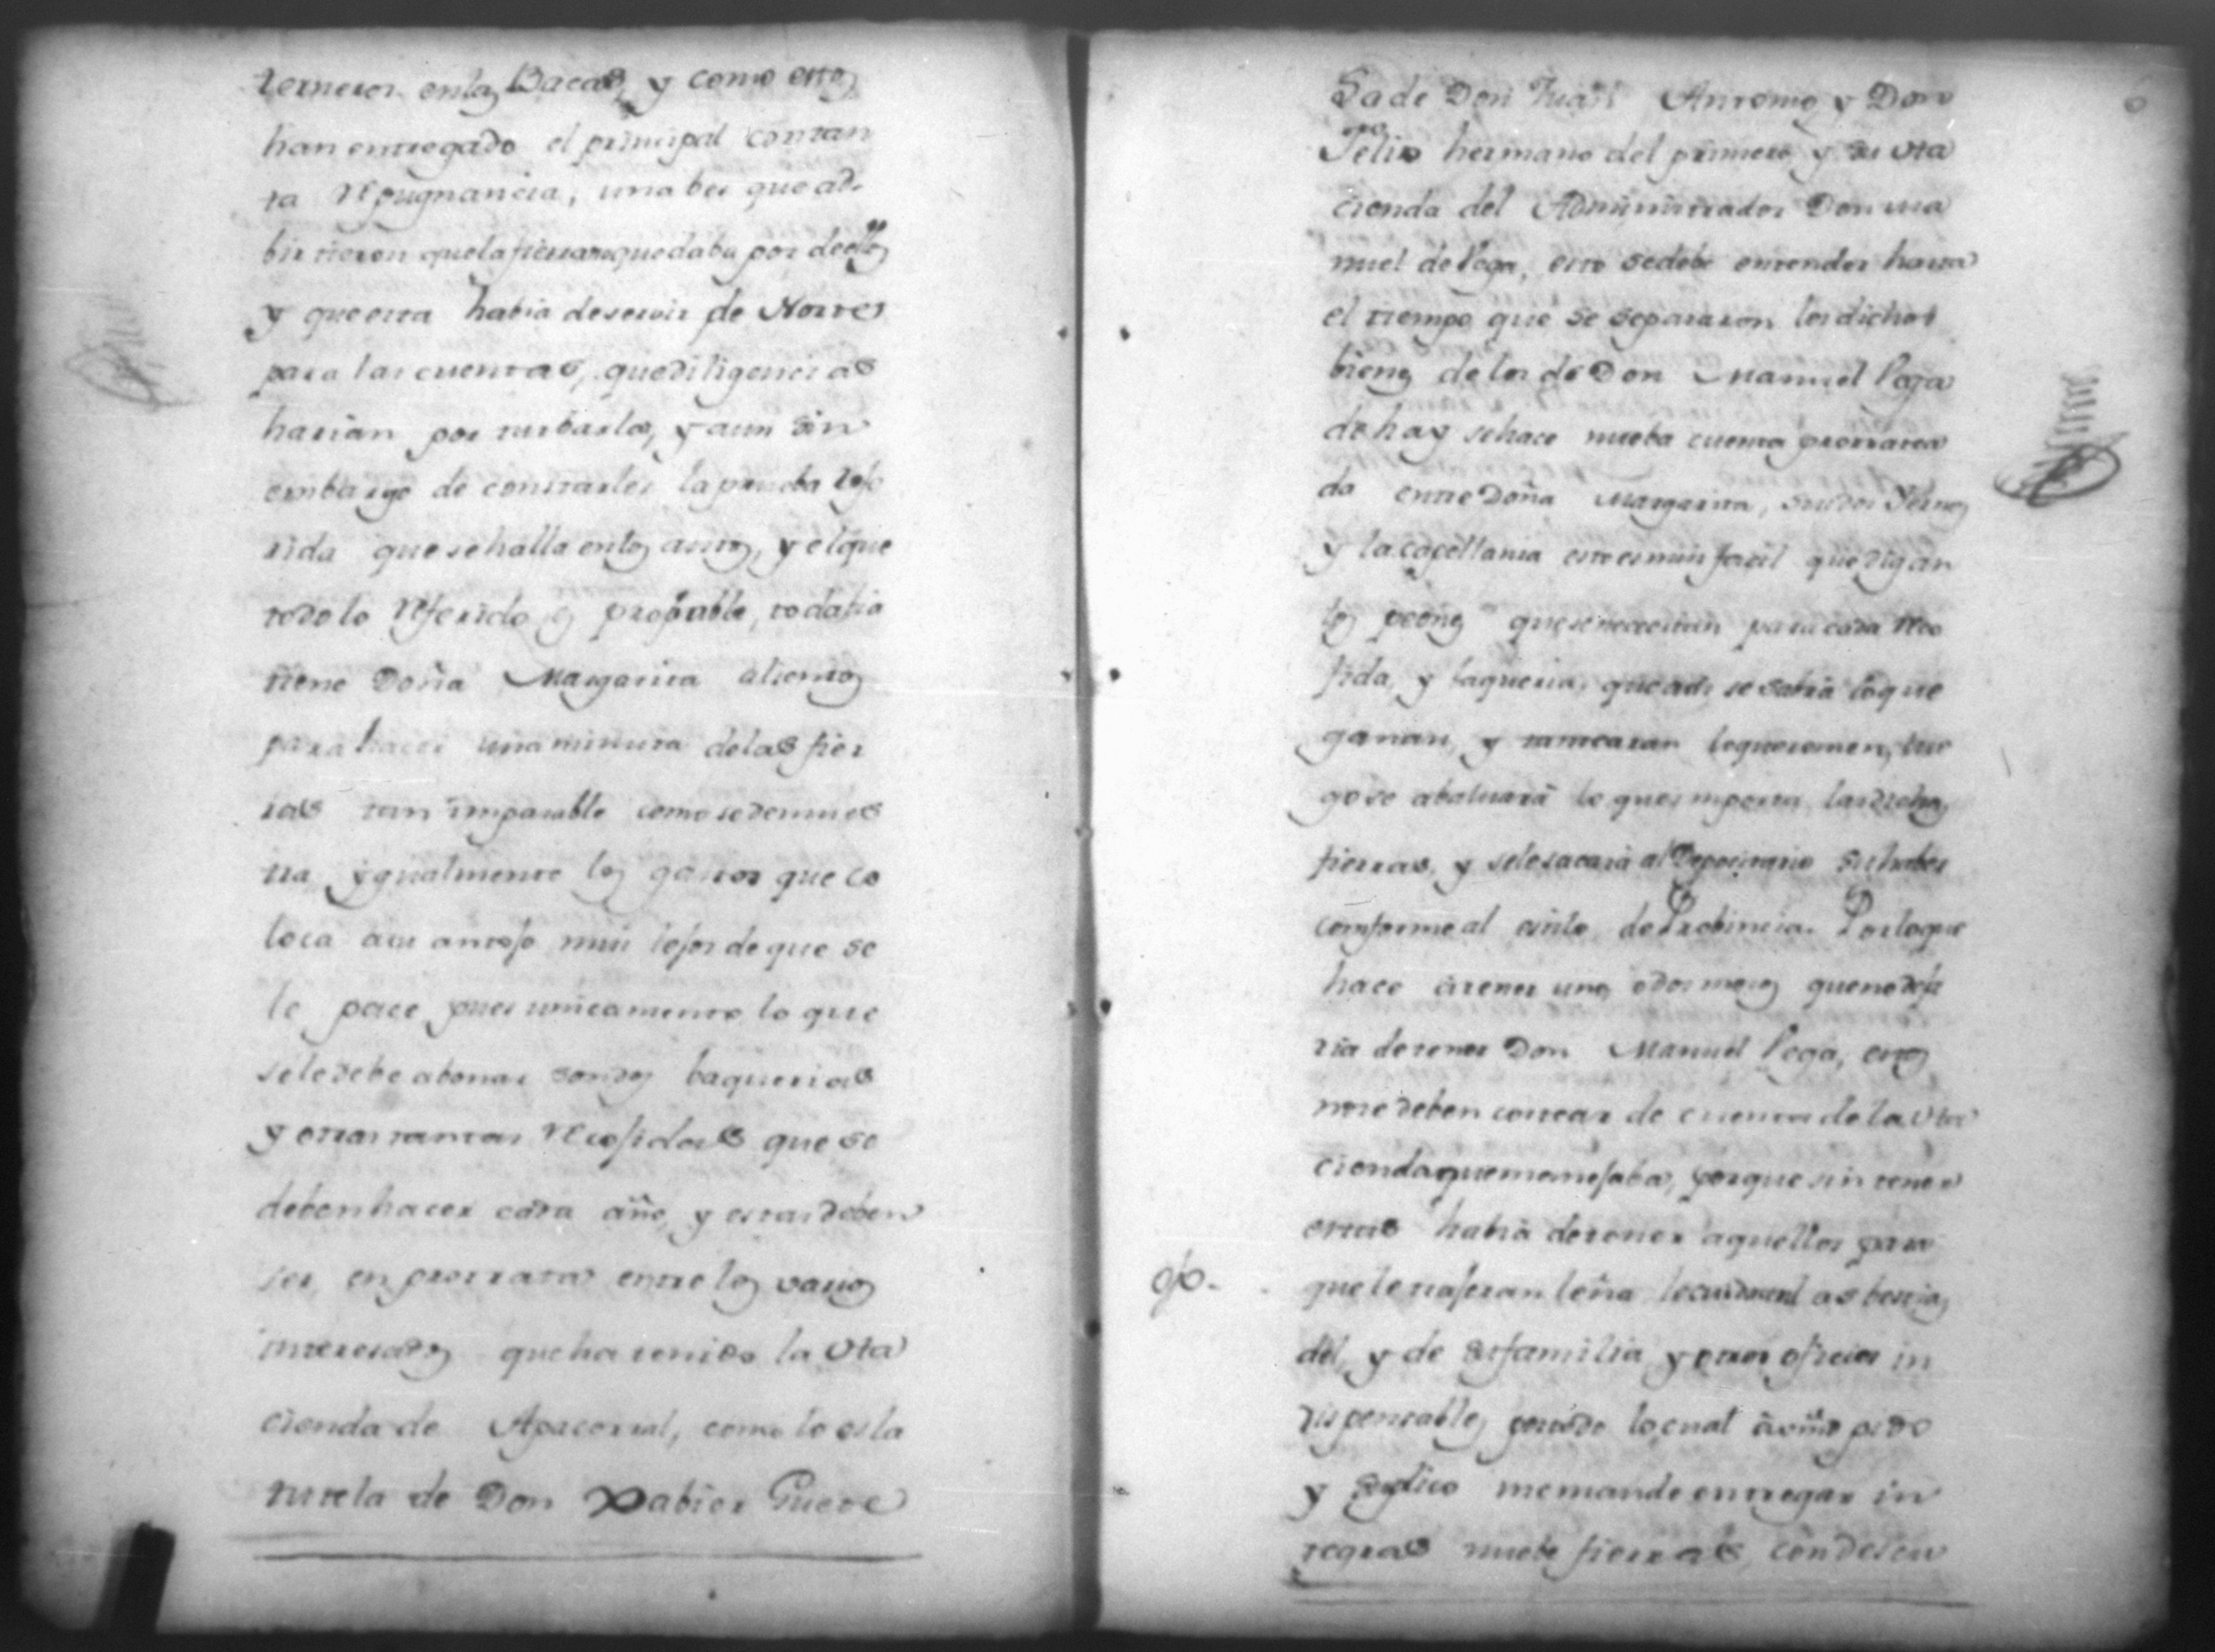 terneros en las Bacas, y como estos
han entregado el principal con tan
ta repugnancia, una bes que ad-
birtieron que la fierra quedaba por de ellos
y que esta habia de servir de Norte
para las cuentas, que diligencias
harian por turbarlos, y aun sin
embargo de constarles la prueba refe
rida que se halla en los autos, y el que
todo lo referido es probable, todabia
tiene Doña Margarita alientos
para hacer una minuta de las fier
ras tan imparable como se demues
tra, ygualmente los gastos que co
loca a su antojo mui lejos de que se
le pace pues unicamente lo que
se le debe abonar son dos baquerias
y otras tantas recojidas que se
deben hacer cada año, y estas deben
ser en prorrata entre los varios
interesados que ha tenido la Ha
cienda de Apacorral, como lo es la
tutela de Don Xabier Gueve
6
Sa de Don Juan Antonio, y Don
Felis hermano del primero y su Ha
cienda del Administrador Don Ma
nuel de Vega, esto se debe entender hasta
el tiempo que se separaron los dichos
bienes de los de Don Manuel Vega
de hay se hace nueba cuenta prorratea
da entre Doña Margarita, sus dos Yernos
y la capellania esto es mui facil que digan
los peones que se necesitan para cada reco
jida, y baqueria, que adi se sabra lo que
ganan, y tantearan lo que comen, lue
go se abaluara lo que importan las dichas
fierras, y se le sacara al Depocitario su haber
comforme al estilo de Probincia. Por lo que
hace a tener uno, o dos mosos que no deja
ria de tener Don Manuel Vega, estos
no se deben costear de cuenta de la Ha
cienda que manejaba, porque sin tener
estas habia de tener aquellos para
ojo.
que le trajeran leña le cuidaran las bestias
del, y de su familia, y otros oficios in
dispensables por todo lo cual a vmd pido
y suplico me mande entregar in
tegras nuebe fierras, con descu